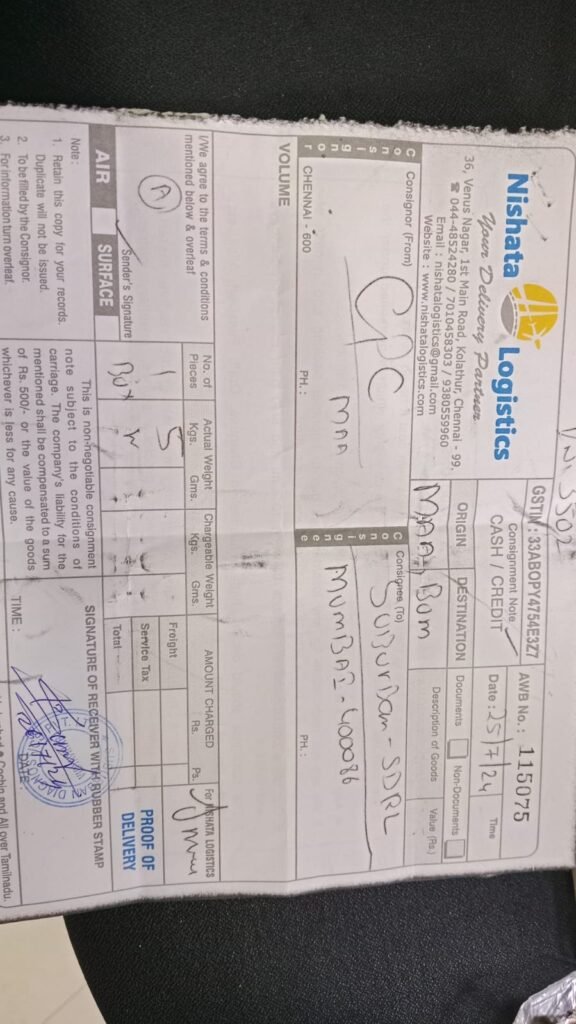 Nishata Logistics
Your Delivery Partner
36, Venus Nagar, 1st Main Road, Kolathur, Chennai - 99.
☎ 044-48524280 / 7010458303 / 9380559960
Email : nishatalogistics@gmail.com
Website : www.nishatalogistics.com
3502
GSTIN : 33ABOPY4754E3Z7
Consignment Note
CASH / CREDIT
AWB No.: 115075
Date : 25/7/24
Time
ORIGIN
DESTINATION
MAA
Bom
Documents
Non-Documents
Description of Goods
Value (Rs.)
Consignor
Consignor (From)
CPC
MAA
CHENNAI - 600
PH. :
Consignee
Consignee (To)
SUBURBan - SDRL
MUMBAI - 400086
PH. :
VOLUME
I/We agree to the terms & conditions
mentioned below & overleaf
A
Sender's Signature
No. of
Pieces
1
Box
Actual Weight
Kgs. Gms.
5
W
Chargeable Weight
Kgs. Gms.
AMOUNT CHARGED
Rs. Ps.
Freight
Service Tax
Total
For NISHATA LOGISTICS
PROOF OF
DELIVERY
AIR
SURFACE
Note :
1. Retain this copy for your records.
Duplicate will not be issued.
2. To be filled by the Consignor.
3. For information turn overleaf.
This is non-negotiable consignment
note subject to the conditions of
carriage. The company's liability for the
mentioned shall be compensated to a sum
of Rs. 500/- or the value of the goods
whichever is less for any cause.
SIGNATURE OF RECEIVER WITH RUBBER STAMP
26/7/24
TIME :
DATE :
and All over Tamilnadu.